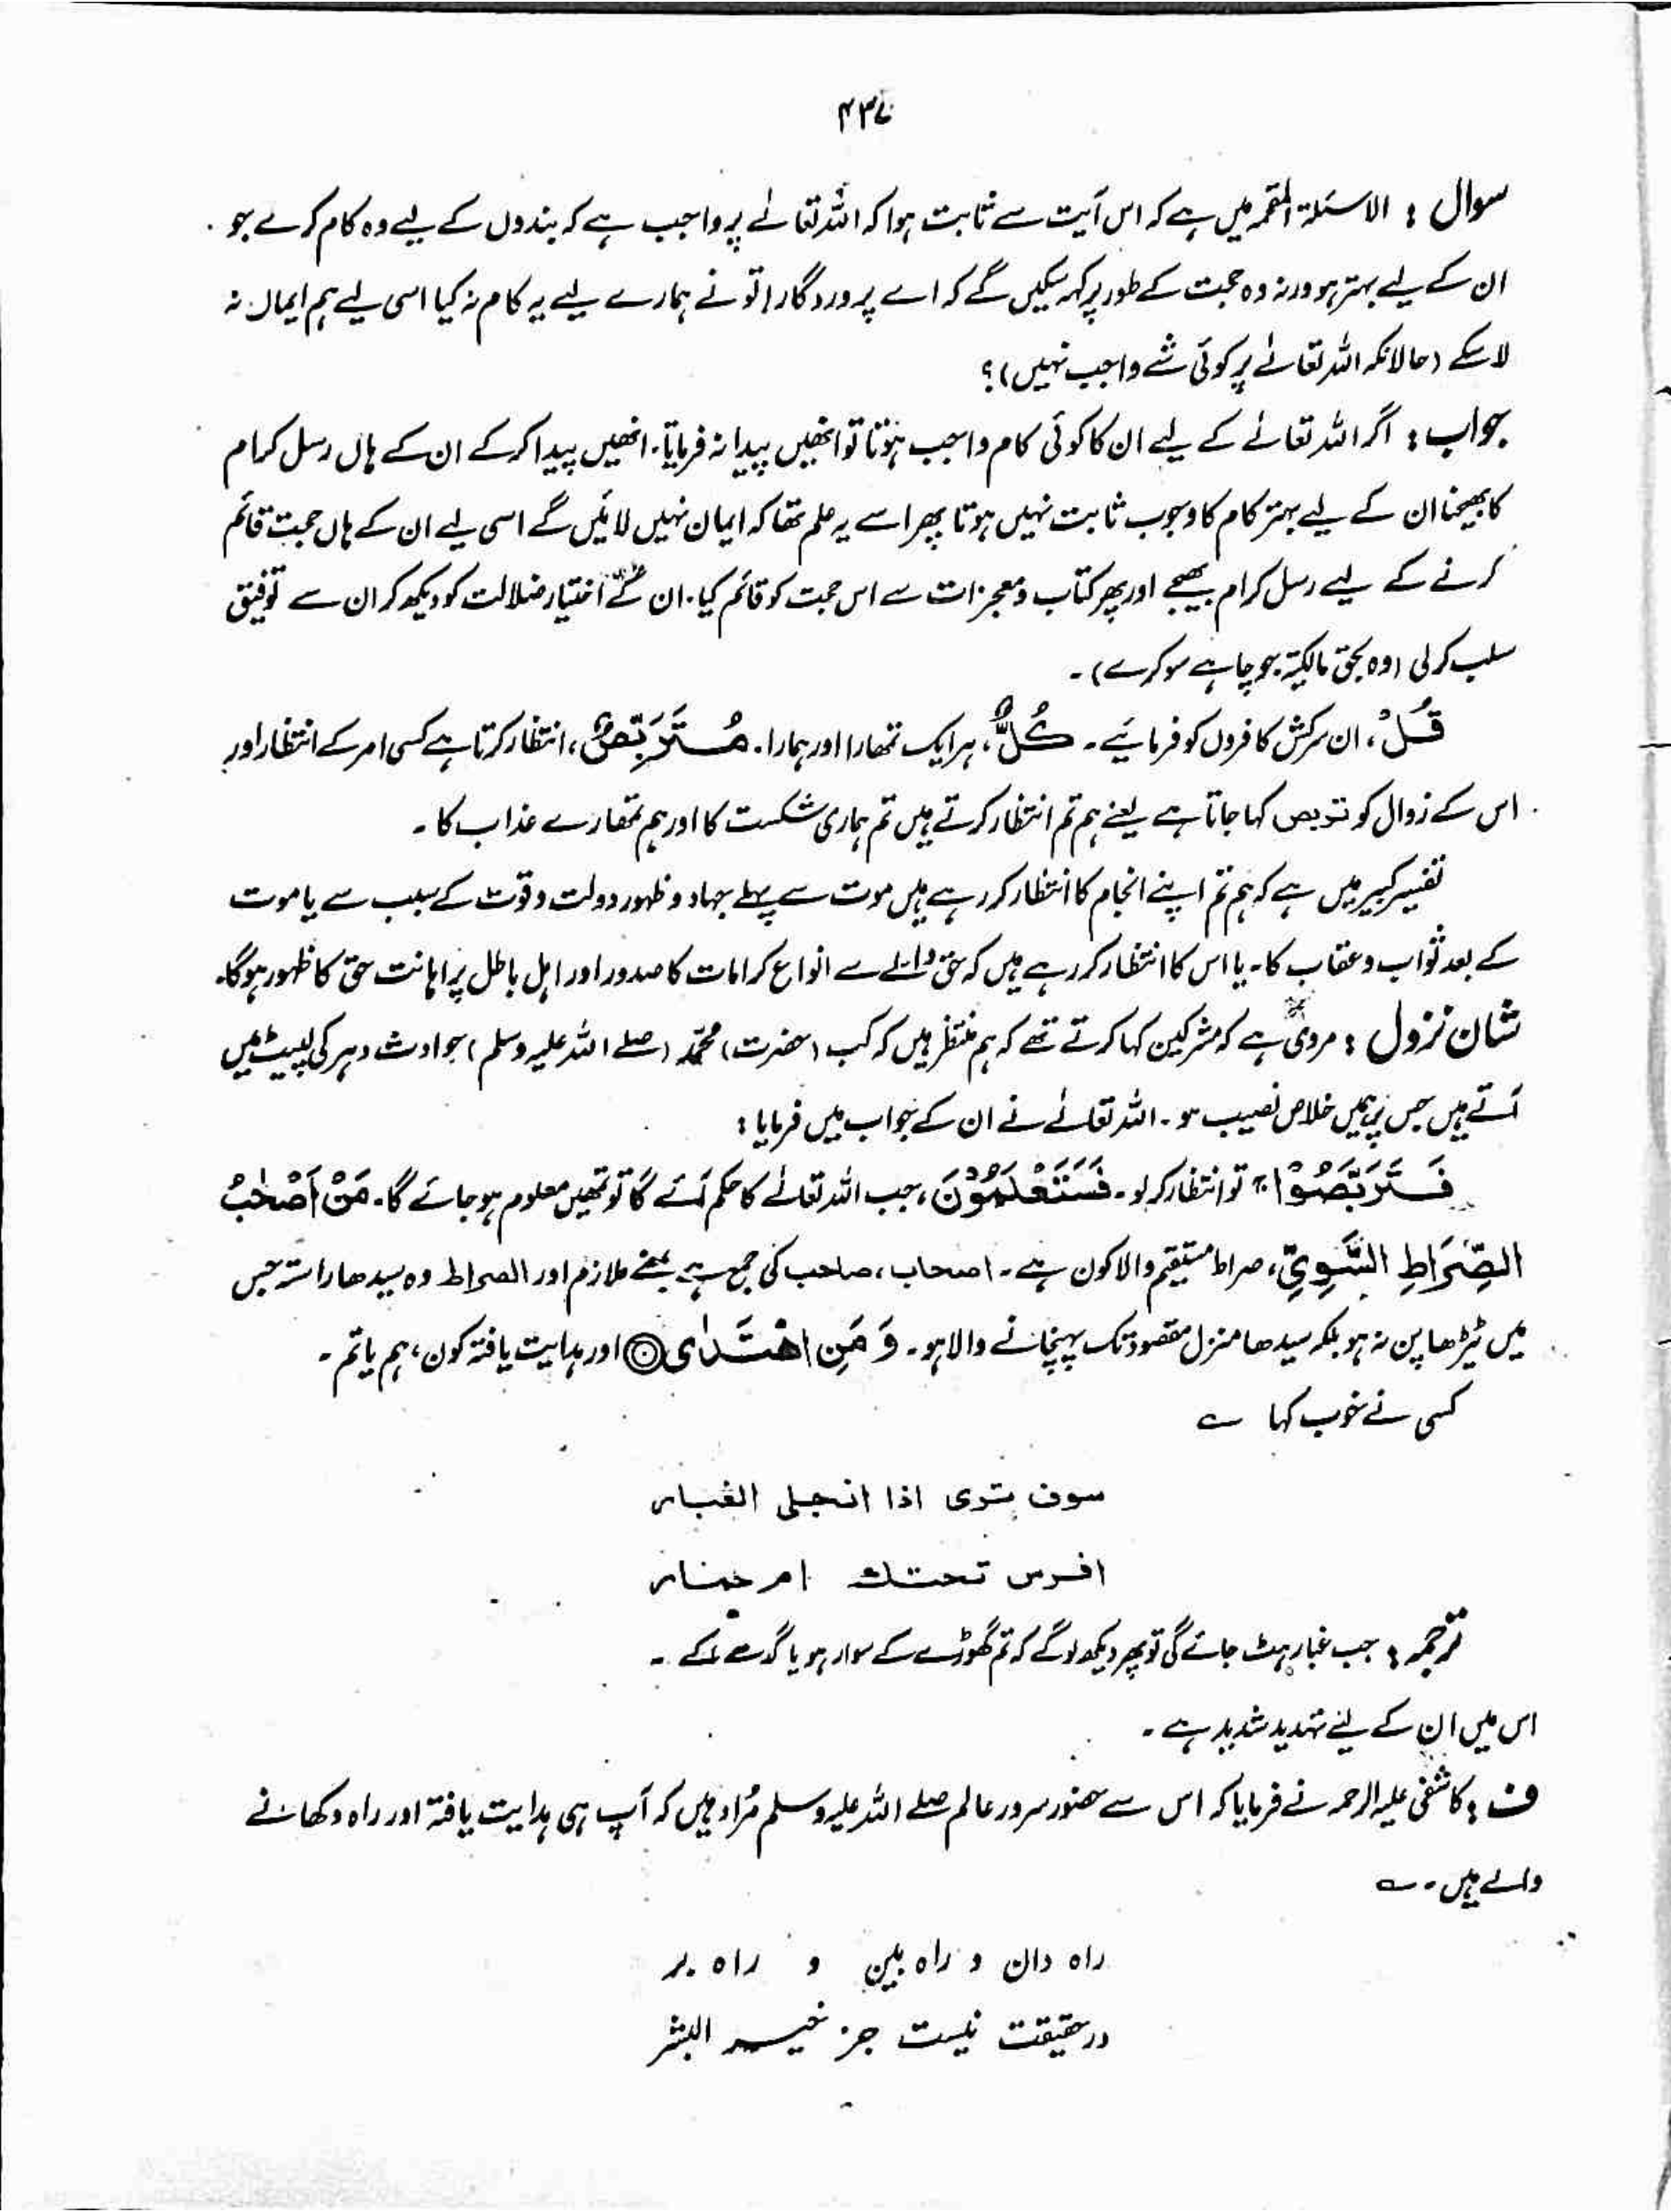 ۴۳۷
سوال : الاسئلة المقحمہ میں ہے کہ اس آیت سے ثابت ہوا کہ اللہ تعالےٰ پر واجب ہے کہ بندوں کے لیے وہ کام کرے جو
ان کے لیے بہتر ہو ورنہ وہ حجت کے طور پر کہہ سکیں گے کہ اے پروردگار! تو نے ہمارے لیے یہ کام نہ کیا اسی لیے ہم ایمان نہ
لا سکے (حالانکہ اللہ تعالےٰ پر کوئی شے واجب نہیں)؟
جواب : اگر اللہ تعالےٰ کے لیے ان کا کوئی کام واجب ہوتا تو انھیں پیدا نہ فرماتا۔ انھیں پیدا کرکے ان کے ہاں رسل کرام
کا بھیجنا ان کے لیے بہتر کام کا وجوب ثابت نہیں ہوتا پھر اسے یہ علم تھا کہ ایمان نہیں لائیں گے اسی لیے ان کے ہاں حجت قائم
کرنے کے لیے رسل کرام بھیجے اور پھر کتاب و معجزات سے اس حجت کو قائم کیا۔ ان کے اختیار ضلالت کو دیکھ کر ان سے توفیق
سلب کر لی (وہ بحق مالکیتہ جو چاہے سو کرے)۔
قُلْ، ان سرکش کافروں کو فرمائیے۔ كُلٌّ، ہر ایک تمھارا اور ہمارا۔ مُتَرَبِّصٌ، انتظار کرتا ہے کسی امر کے انتظار اور
اس کے زوال کو تربص کہا جاتا ہے یعنے ہم تم انتظار کرتے ہیں تم ہماری شکست کا اور ہم تمھارے عذاب کا۔
تفسیر کبیر میں ہے کہ ہم تم اپنے انجام کا انتظار کر رہے ہیں موت سے پہلے جہاد و ظہور دولت و قوت کے سبب سے یا موت
کے بعد ثواب و عقاب کا۔ یا اس کا انتظار کر رہے ہیں کہ حق والے سے انواع کرامات کا صدور اور اہل باطل پر اہانت حق کا ظہور ہوگا۔
شان نزول : مروی ہے کہ مشرکین کہا کرتے تھے کہ ہم منتظر ہیں کہ کب (حضرت) محمد (صلے اللہ علیہ وسلم) حوادث دہر کی لپیٹ میں
آتے ہیں جس پر ہمیں خلاص نصیب ہو۔ اللہ تعالےٰ نے ان کے جواب میں فرمایا :
فَتَرَبَّصُوْا ۚ تو انتظار کر لو۔ فَسَتَعْلَمُوْنَ، جب اللہ تعالےٰ کا حکم آئے گا تو تمھیں معلوم ہو جائے گا۔ مَنْ اَصْحٰبُ
الصِّرَاطِ السَّوِيِّ، صراط مستقیم والا کون ہے۔ اصحاب، صاحب کی جمع ہے بمعنے ملازم اور الصراط وہ سیدھا راستہ جس
میں ٹیڑھا پن نہ ہو بلکہ سیدھا منزل مقصود تک پہنچانے والا ہو۔ وَ مَنِ اهْتَدٰى ۝ اور ہدایت یافتہ کون، ہم یا تم۔
کسی نے خوب کہا ؎
سوف ترى اذا انجلى الغبار
افرس تحتك ام حمار
ترجمہ : جب غبار ہٹ جائے گی تو پھر دیکھ لوگے کہ تم گھوڑے کے سوار ہو یا گدھے کے۔
اس میں ان کے لیے تہدید شدید ہے۔
ف : کاشفی علیہ الرحمہ نے فرمایا کہ اس سے حضور سرور عالم صلے اللہ علیہ وسلم مُراد ہیں کہ آپ ہی ہدایت یافتہ اور راہ دکھانے
والے ہیں۔ ؎
راہ دان و راہ بین و راہ بر
در حقیقت نیست جز خیر البشر